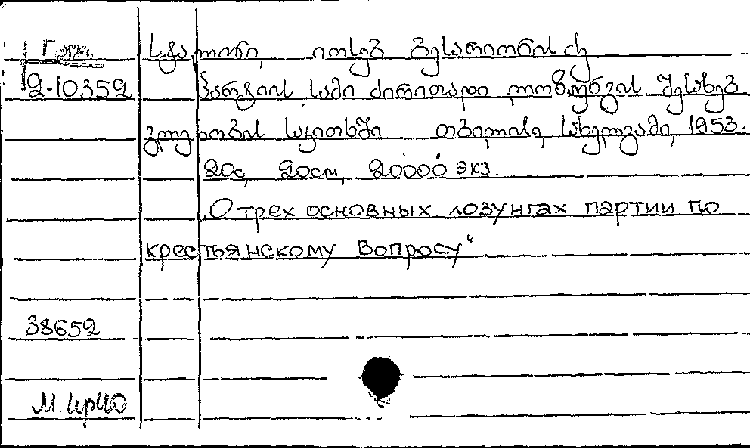 სტალინი, იოსებ ბესარიონის ძე
2-10352 პარტიის სამი ძირითადი ლოზუნგის შესახებ
გლეხობის საკითხში თბილისი, სახელგამი, 1953.
20с, 20см, 20000 экз.
О трех основных лозунгах партии по
крестьянскому вопросу"
38652